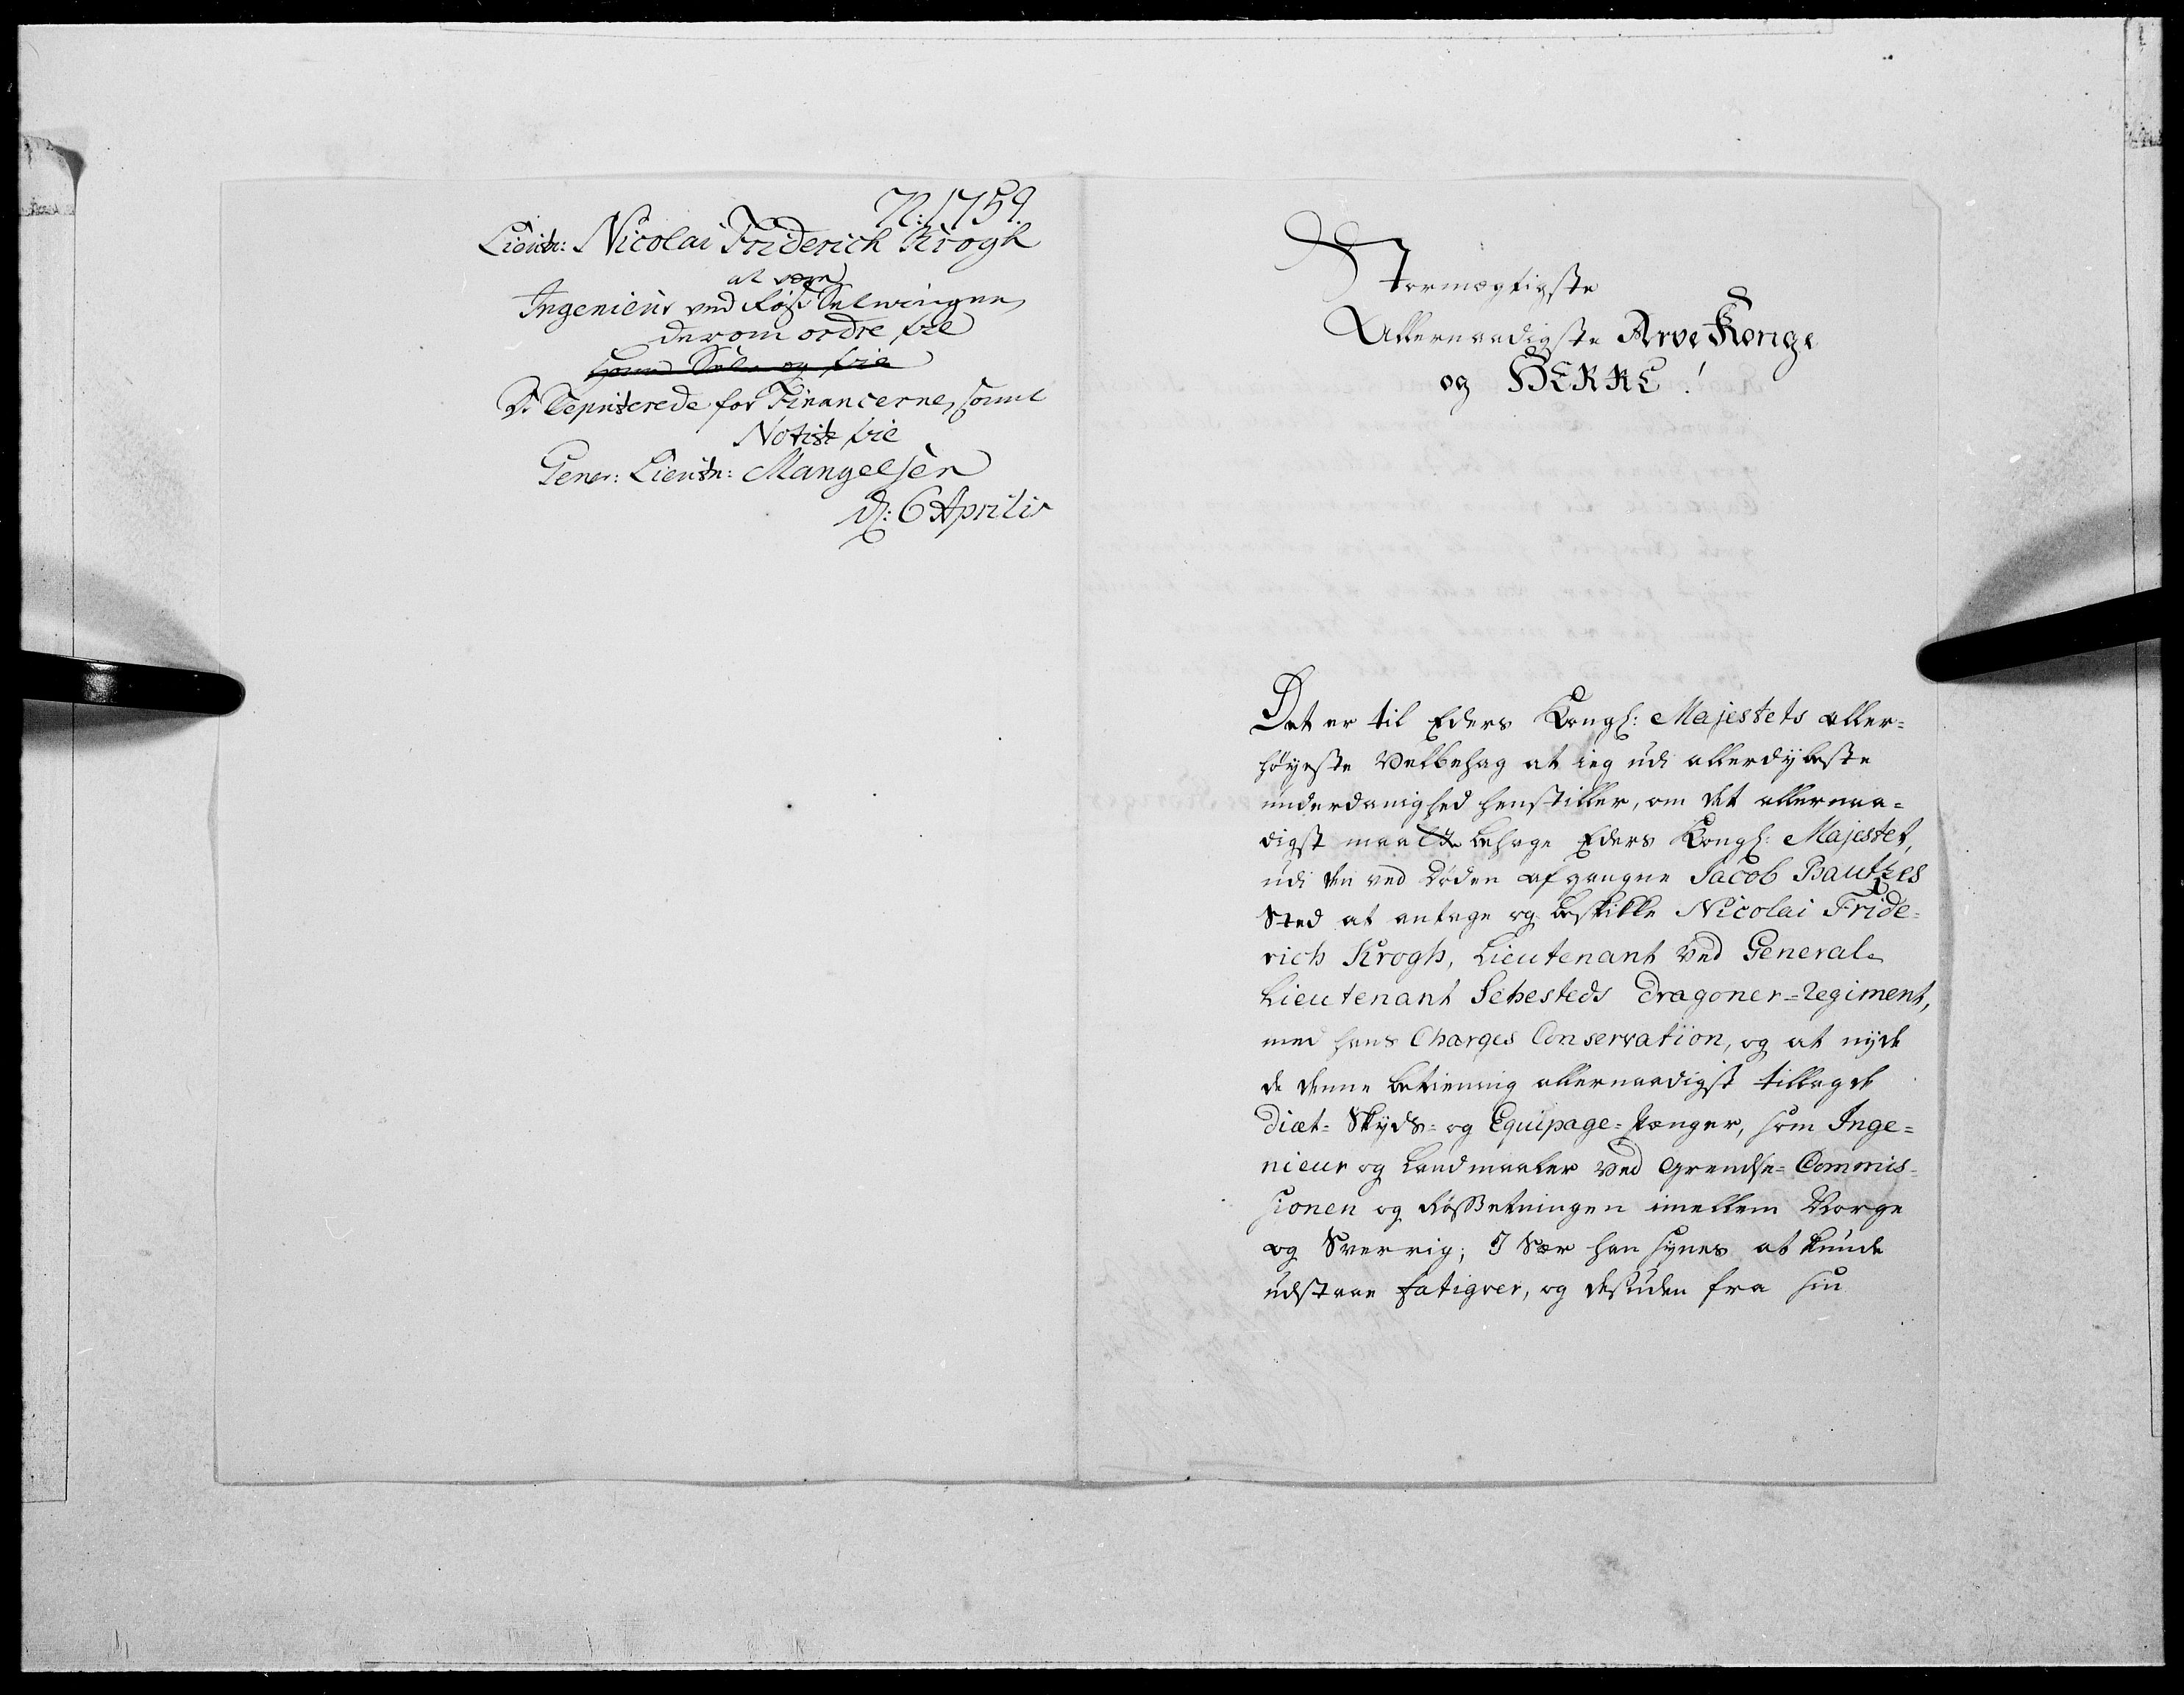 N: 1759.
Lieutn: Nicolai Friderich Krogh
at være
Ingenieur ved Røs Setningen,
derom ordre til
De Deputerede for Financerne, samt
Notice til
Gener: Lieutn: Mangelsen
d: 6 Aprilis
Stormægtigste
Allernaadigste Arve Konge
og HERRE!
Det er til Eders Kongl: Majestets aller-
høyeste Velbehag at ieg udi allerdybeste
underdanighed henstiller, om det allernaa-
digst maatte behage Eders Kongl: Majestet,
udi den ved Døden afgangne Jacob Bautzes
Sted at antage og beskikke Nicolai Fride-
rich Krogh, Lieutenant ved General-
Lieutenant Sehesteds Dragoner-Regiment,
med hans Charges Conservation, og at nyde
de denne betiening allernaadigst tillagde
Diæt- Skyds- og Equipage-Penger, som Inge-
nieur og Landmaaler ved Grendse-Commis-
sionen og RøsSetningen imellem Norge
og Sverrig; I Sær han synes at kunde
udstaae fatigver, og desuden fra sin